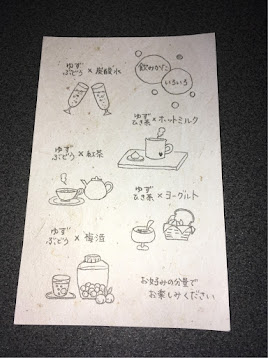 飲みかた
いろいろ
ゆず
ぶどう × 炭酸水
ゆず
むき茶 × ホットミルク
ゆず
ぶどう × 紅茶
ゆず
むき茶 × ヨーグルト
ゆず
ぶどう × 梅酒
お好みの分量で
お楽しみください